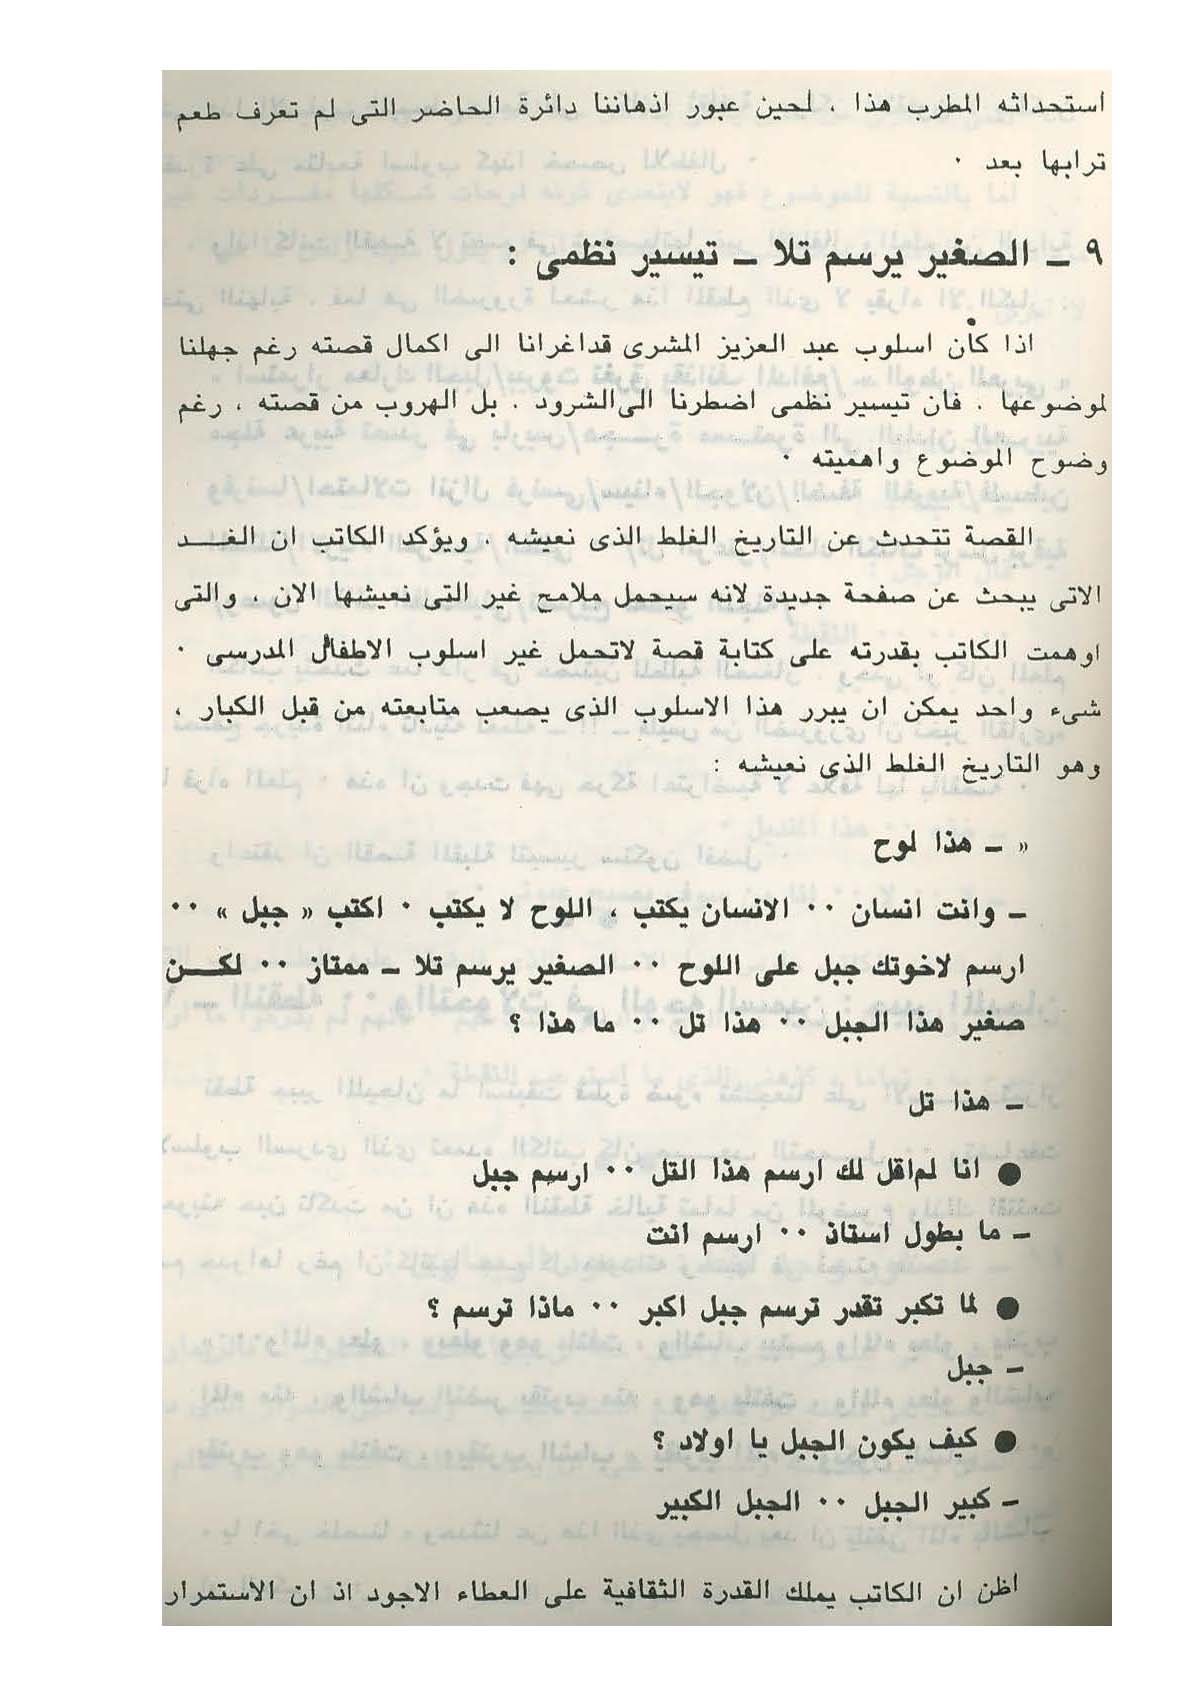 استحداثه المطرب هذا ، لحين عبور اذهاننا دائرة الحاضر التى لم تعرف طعم
ترابها بعد ٠
٩ ـ الصغير يرسم تلا ـ تيسير نظمى :
اذا كان اسلوب عبد العزيز المشرى قداغرانا الى اكمال قصته رغم جهلنا
لموضوعها ، فان تيسير نظمى اضطرنا الىالشرود . بل الهروب من قصته ، رغم
وضوح الموضوع واهميته ٠
القصة تتحدث عن التاريخ الغلط الذى نعيشه ، ويؤكد الكاتب ان الغـــد
الاتى يبحث عن صفحة جديدة لانه سيحمل ملامح غير التى نعيشها الان ، والتى
اوهمت الكاتب بقدرته على كتابة قصة لاتحمل غير اسلوب الاطفال المدرسى ٠
شىء واحد يمكن ان يبرر هذا الاسلوب الذى يصعب متابعته من قبل الكبار ،
وهو التاريخ الغلط الذى نعيشه :
« ـ هذا لوح
ـ وانت انسان ٠٠ الانسان يكتب ، اللوح لا يكتب ٠ اكتب « جبل » ٠٠
ارسم لاخوتك جبل على اللوح ٠٠ الصغير يرسم تلا ـ ممتاز ٠٠ لكـــن
صغير هذا الجبل ٠٠ هذا تل ٠٠ ما هذا ؟
ـ هذا تل
● انا لم اقل لك ارسم هذا التل ٠٠ ارسم جبل
ـ ما بطول استاذ ٠٠ ارسم انت
● لما تكبر تقدر ترسم جبل اكبر ٠٠ ماذا ترسم ؟
ـ جبل
● كيف يكون الجبل يا اولاد ؟
ـ كبير الجبل ٠٠ الجبل الكبير
اظن ان الكاتب يملك القدرة الثقافية على العطاء الاجود اذ ان الاستمرار